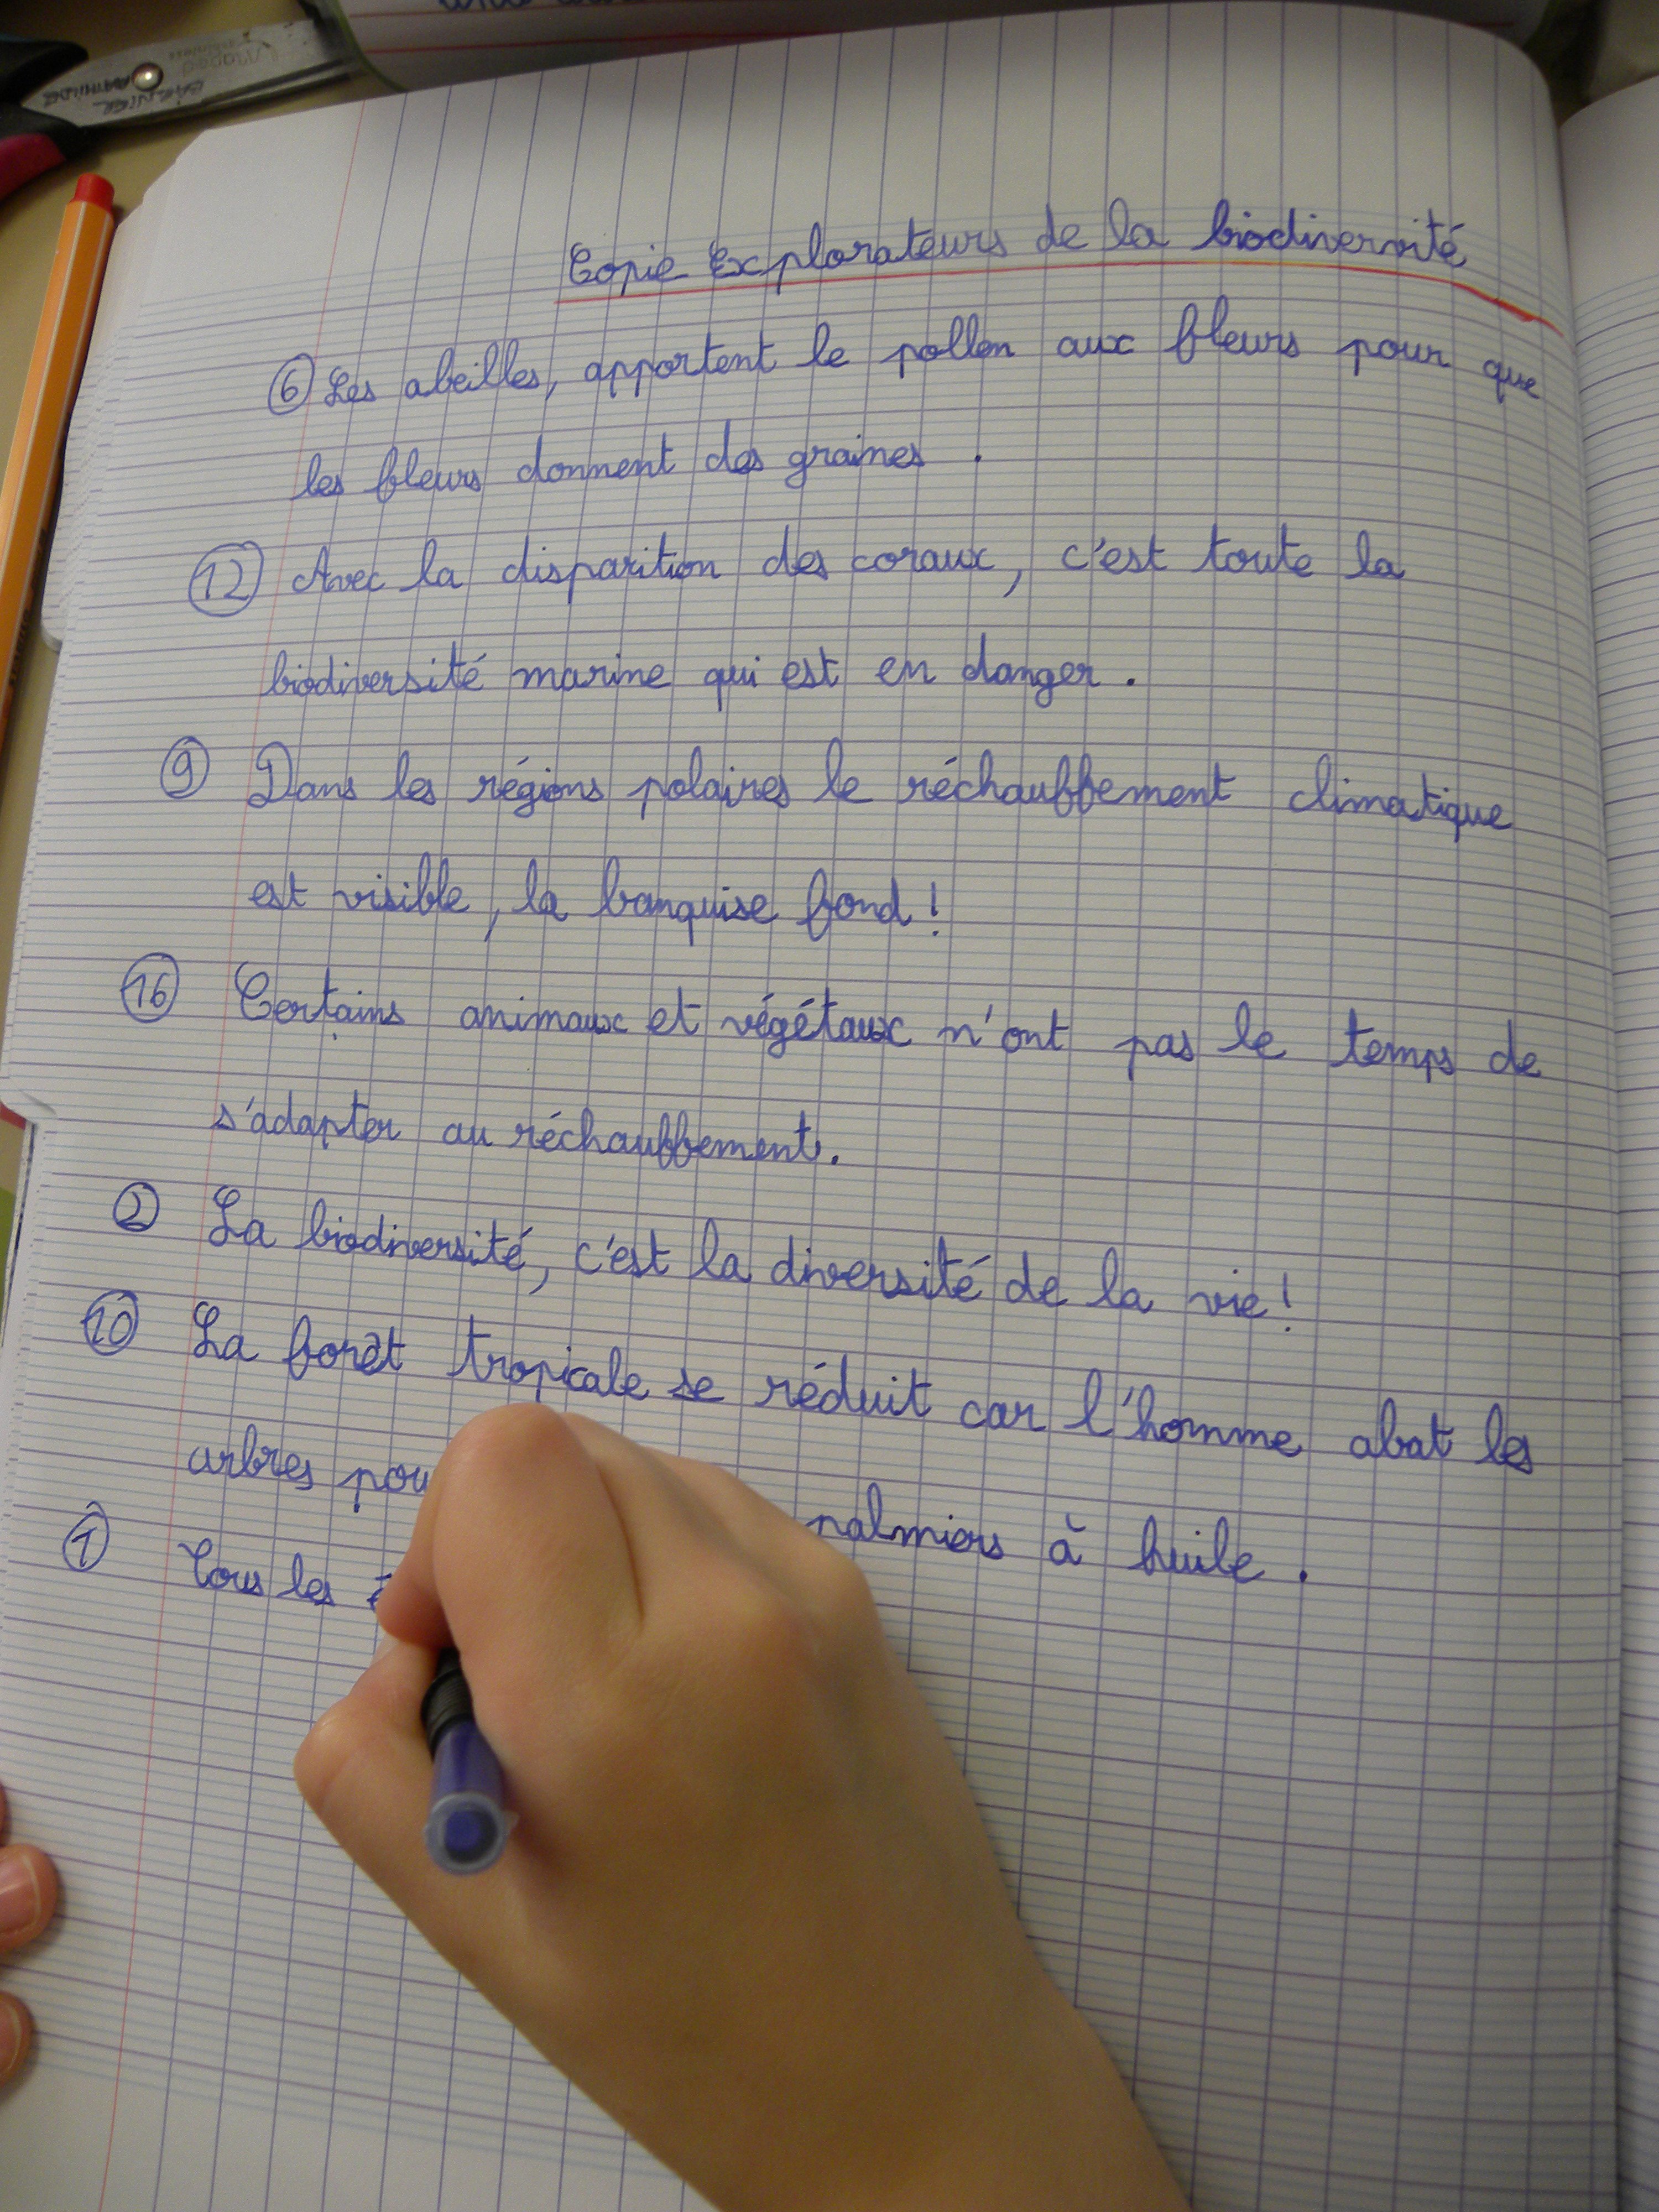 Copie Explorateurs de la biodiversité
⑥ Les abeilles, apportent le pollen aux fleurs pour que
les fleurs donnent des graines .
⑫ Avec la disparition des coraux, c'est toute la
biodiversité marine qui est en danger .
⑨ Dans les régions polaires le réchauffement climatique
est visible, la banquise fond !
⑯ Certains animaux et végétaux n'ont pas le temps de
s'adapter au réchauffement.
② La biodiversité, c'est la diversité de la vie !
⑩ La forêt tropicale se réduit car l'homme abat les
arbres pou palmiers à huile .
① Tous les
Maped